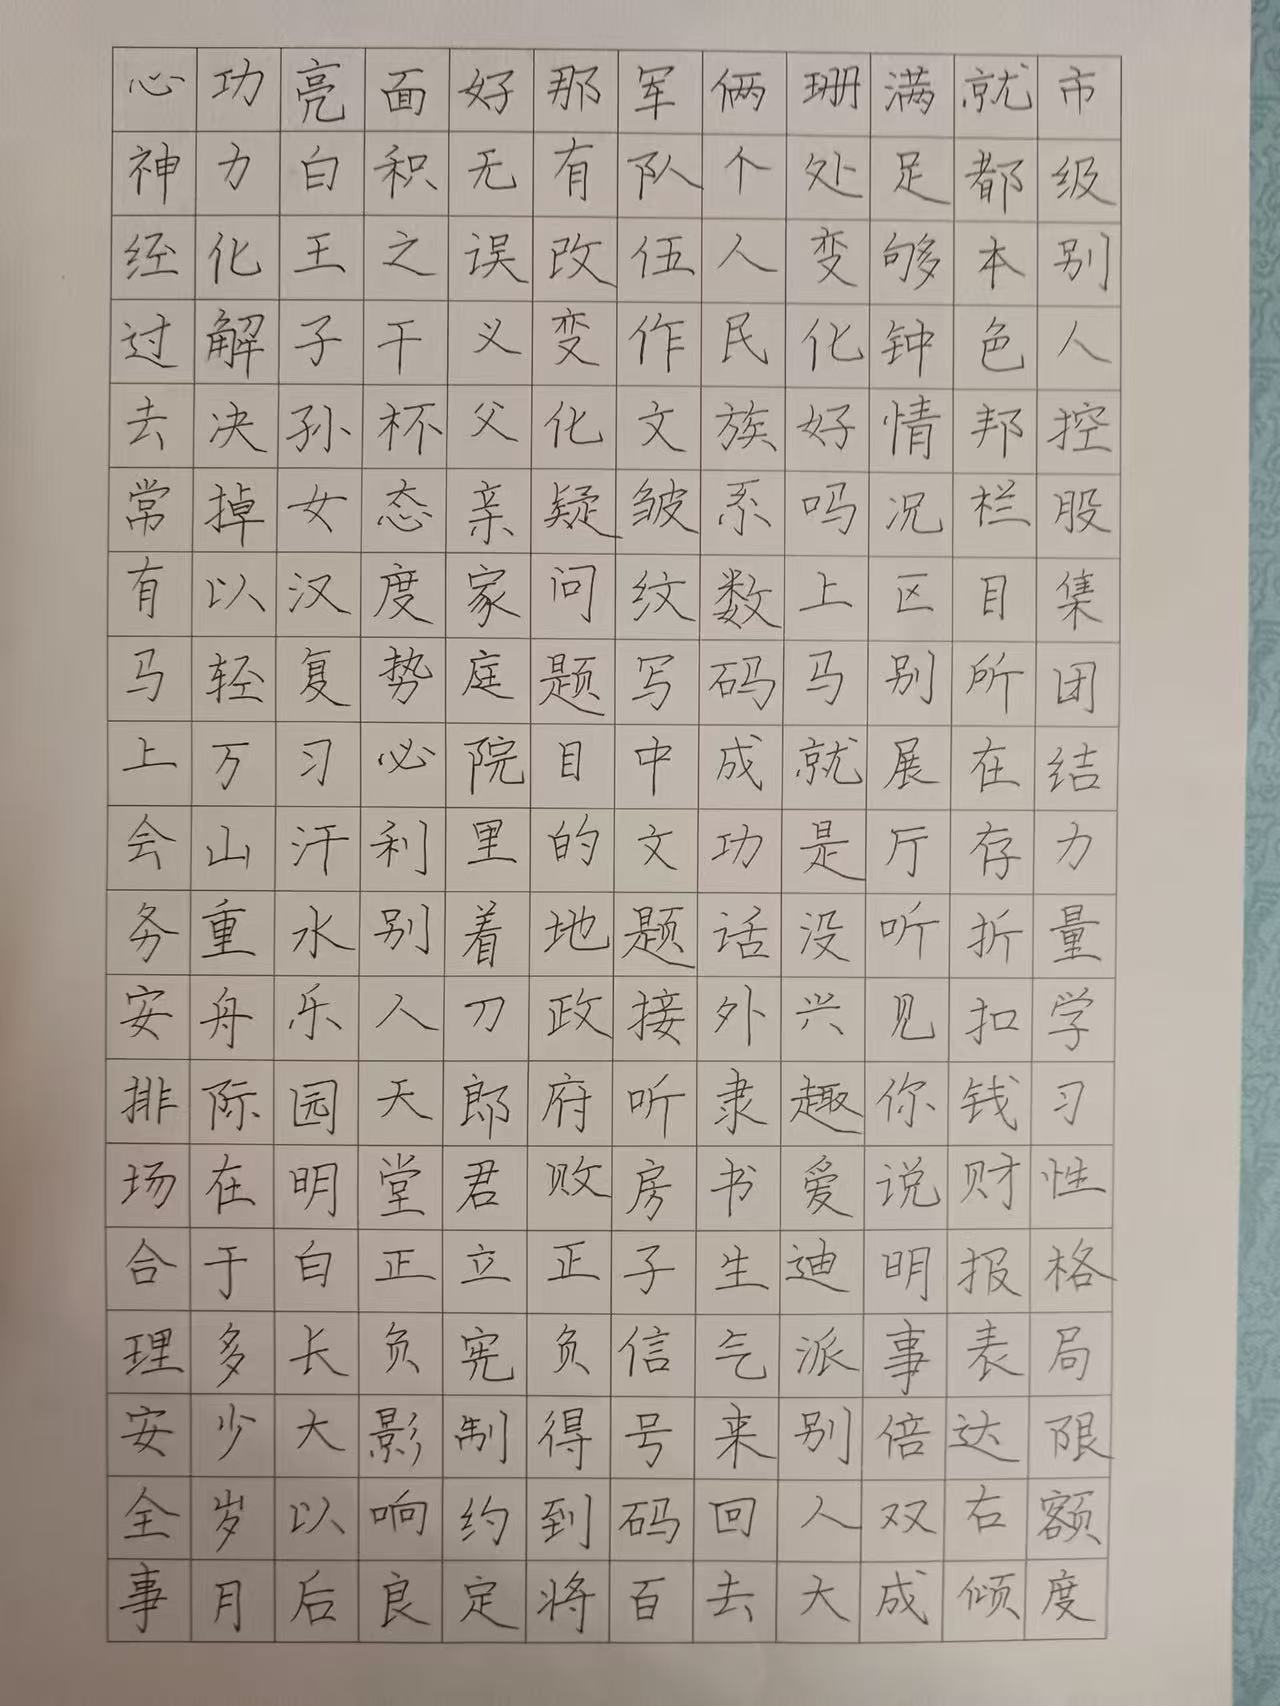 心功亮面好那军俩珊满就市
神力白积无有队个处足都级
经化王之误改伍人变够本别
过解子干义变作民化钟色人
去决孙杯父化文族好情邦控
常掉女态亲疑皱系吗况栏股
有以汉度家问纹数上区目集
马轻复势庭题写码马别所团
上万习必院目中成就展在结
会山汗利里的文功是厅存力
务重水别着地题话没听折量
安舟乐人刀政接外兴见扣学
排际园天郎府听隶趣你钱习
场在明堂君败房书爱说财性
合于白正立正子生迪明报格
理多长负宪负信气派事表局
安少大影制得号来别倍达限
全岁以响约到码回人双右额
事月后良定将百去大成倾度